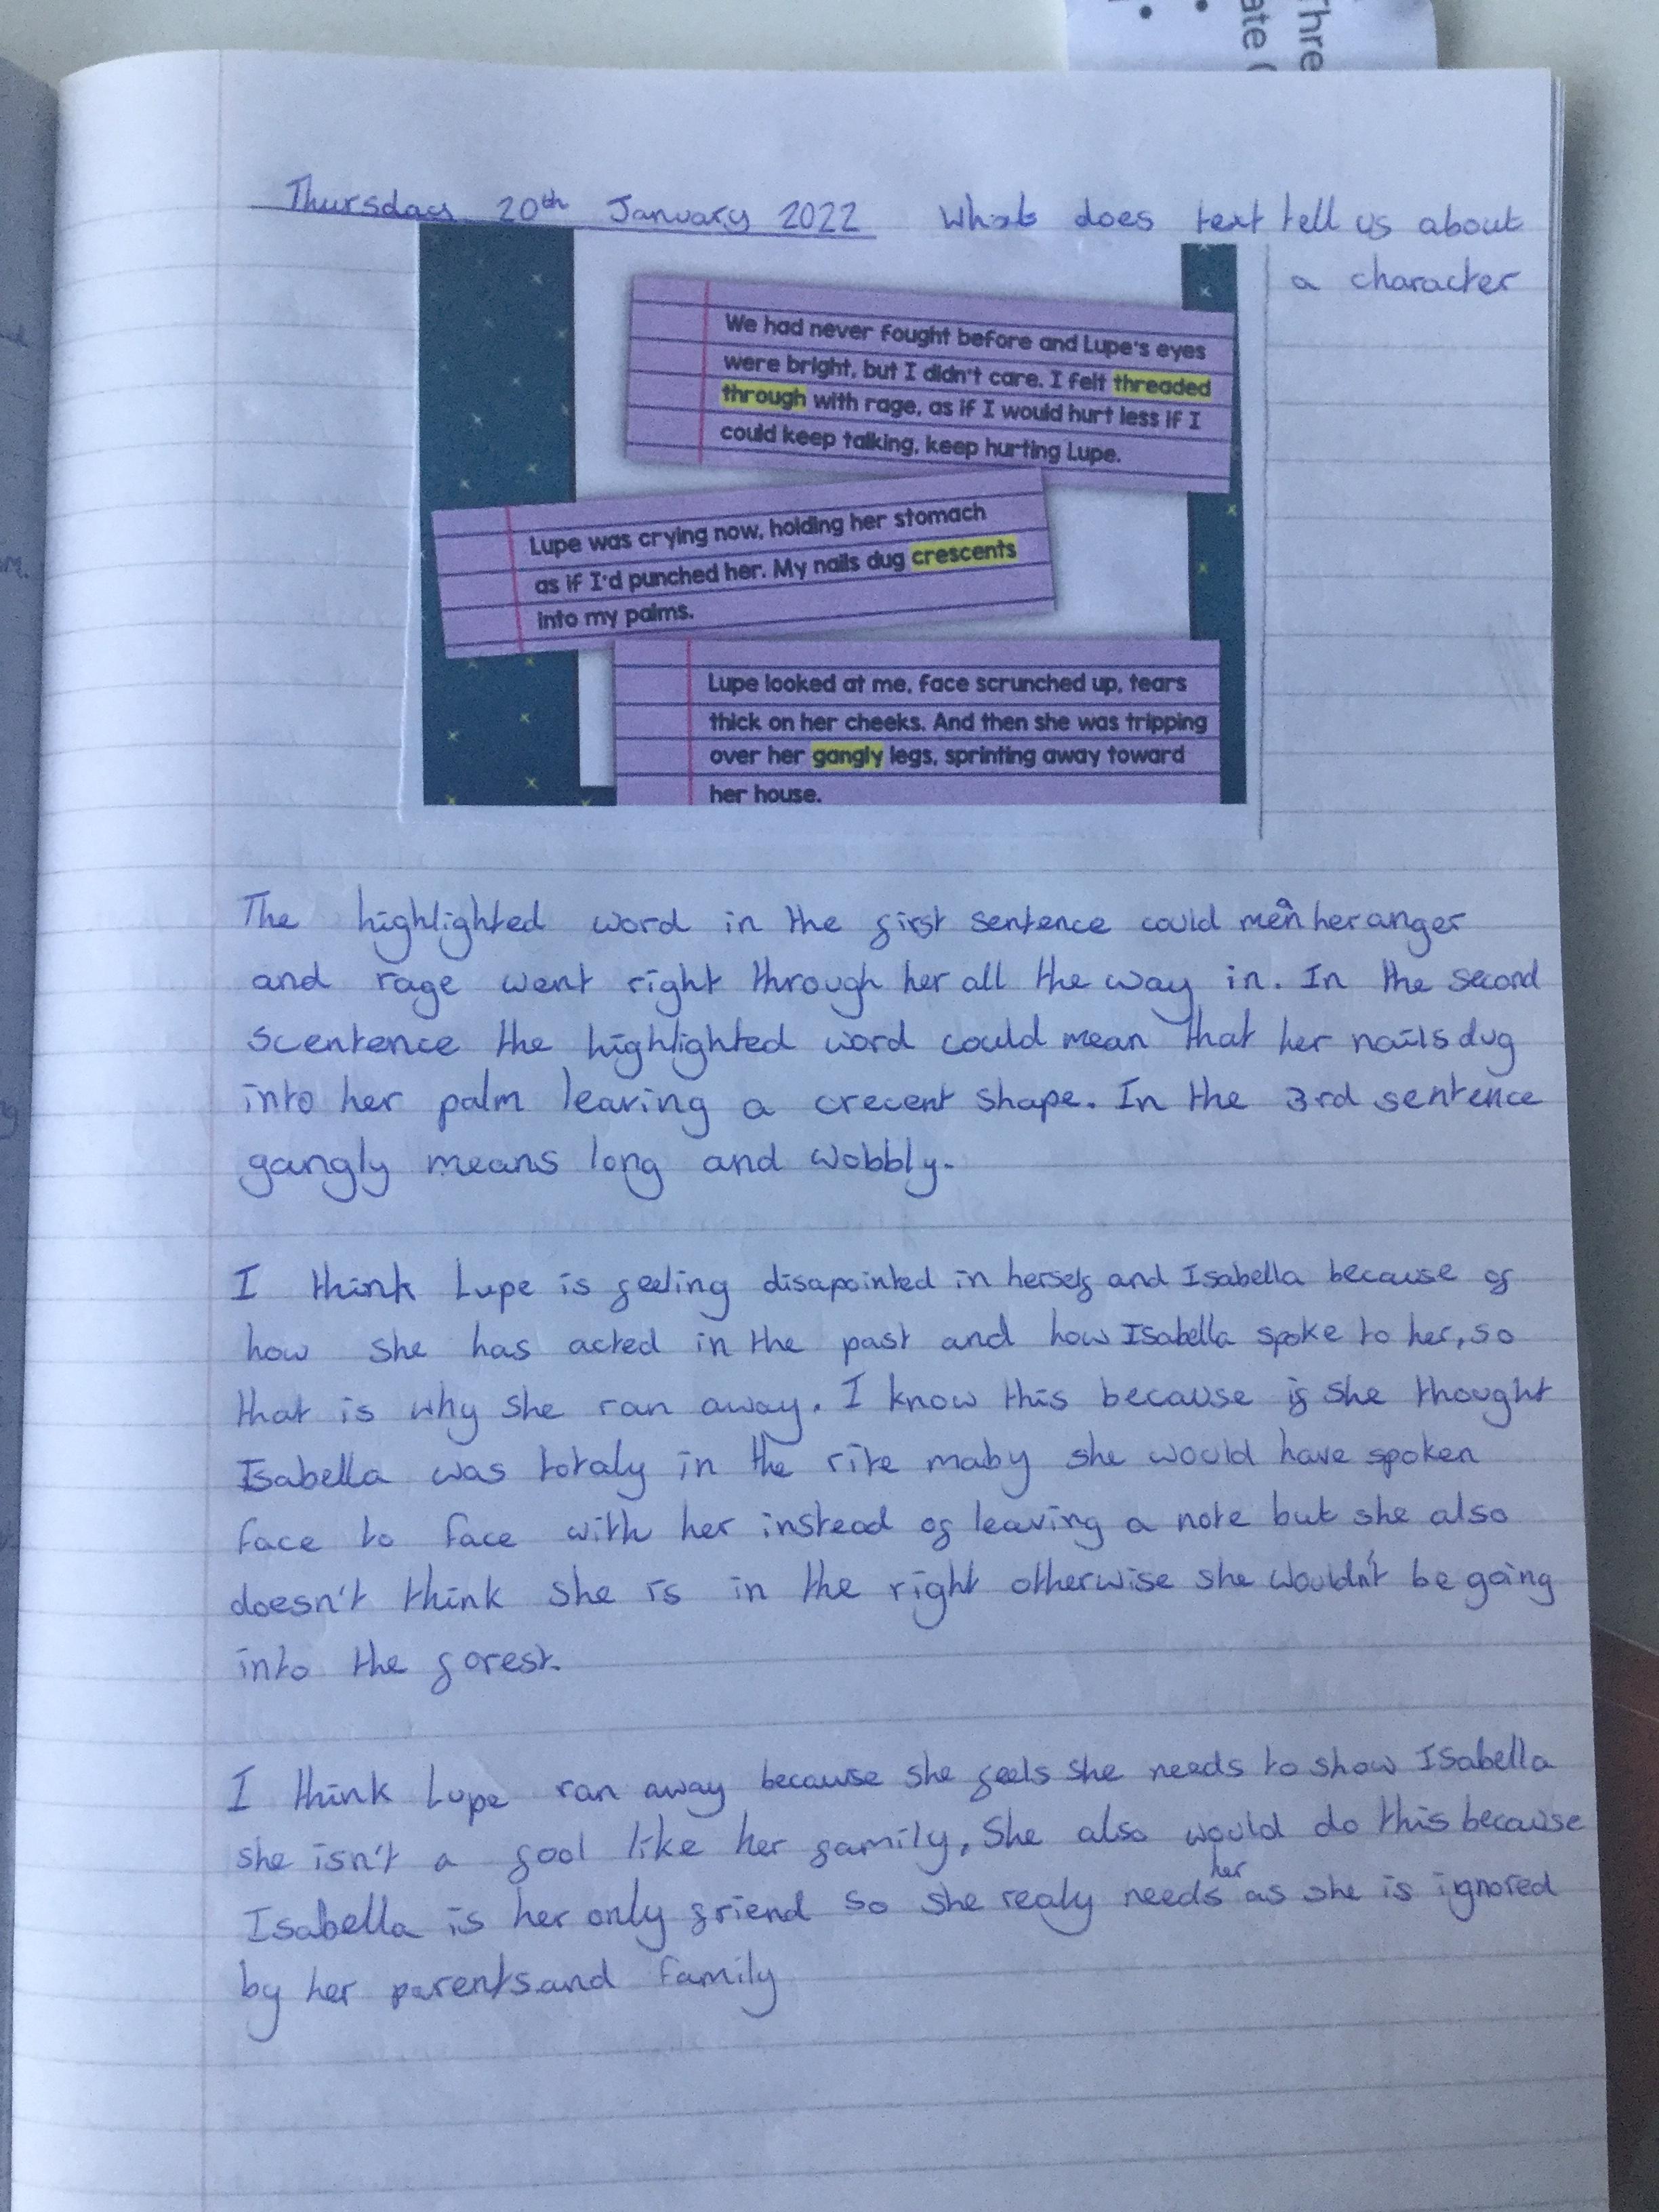 Thre
ate (
Thursday 20th January 2022 What does text tell us about
a character
We had never fought before and Lupe's eyes
were bright, but I didn't care. I felt threaded
through with rage, as if I would hurt less if I
could keep talking, keep hurting Lupe.
Lupe was crying now, holding her stomach
as if I'd punched her. My nails dug crescents
into my palms.
Lupe looked at me, face scrunched up, tears
thick on her cheeks. And then she was tripping
over her gangly legs, sprinting away toward
her house.
The highlighted word in the first sentence could mean her anger
and rage went right through her all the way in. In the second
scentence the highlighted word could mean that her nails dug
into her palm leaving a crecent shape. In the 3rd sentence
gangly means long and wobbly.
I think Lupe is feeling disapointed in herself and Isabella because of
how she has acted in the past and how Isabella spoke to her, so
that is why she ran away. I know this because if she thought
Isabella was totaly in the rite maby she would have spoken
face to face with her instead of leaving a note but she also
doesn't think she is in the right otherwise she wouldn't be going
into the forest.
I think Lupe ran away because she feels she needs to show Isabella
she isn't a fool like her family. She also would do this because
Isabella is her only friend so she realy needs her as she is ignored
by her parents and family